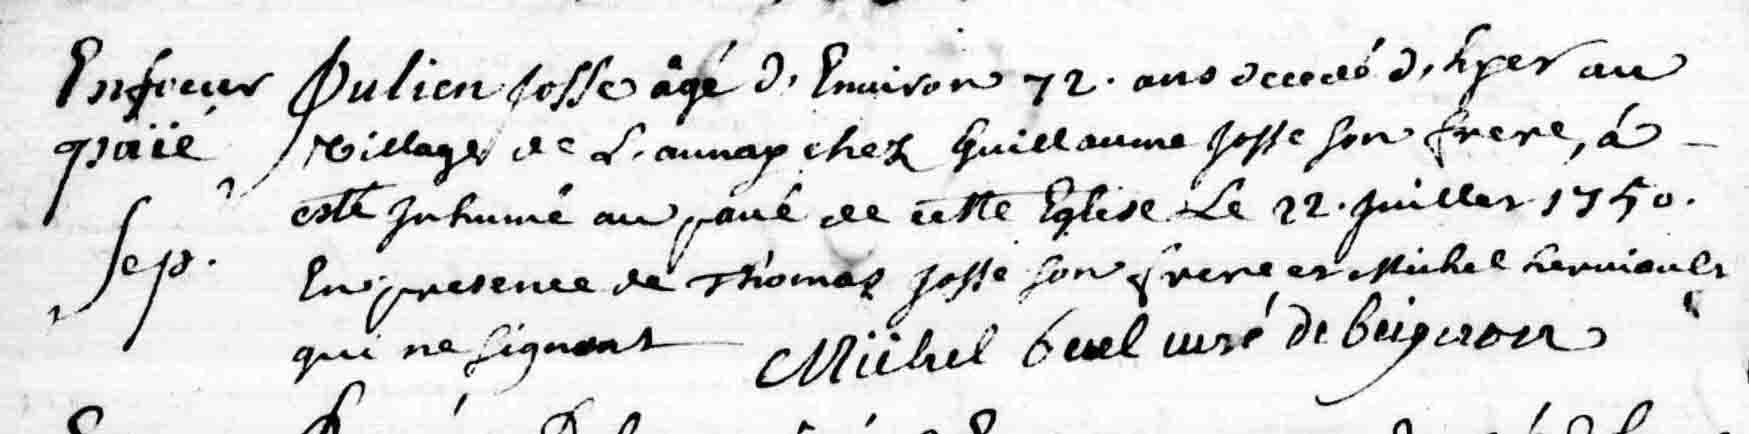 Enfeur Julien Josse âgé d'Environ 72. ans decedé d'hyer au
païé village de L'aunay chez Guillaume Josse son frere, à
esté Inhumé au pavé de cette Eglise Le 22. Juillet 1750.
Sep. En presence de Thomas Josse son frere et Michel herviault
qui ne signent Michel Buel curé de beignon